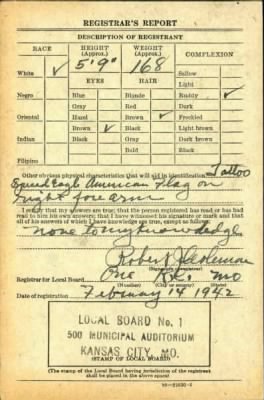 REGISTRAR'S REPORT
DESCRIPTION OF REGISTRANT
RACE HEIGHT (Approx.) WEIGHT (Approx.) COMPLEXION
5' 9" 168
White ✓ EYES HAIR Sallow
Light
Negro Blue Blonde Ruddy ✓
Gray Red Dark
Oriental Hazel Brown ✓ Freckled
Brown ✓ Black Light brown
Indian Black Gray Dark brown
Bald Black
Filipino
Other obvious physical characteristics that will aid in identification Tattoo
Spread Eagle American Flag on
right forearm
I certify that my answers are true; that the person registered has read or has had
read to him his own answers; that I have witnessed his signature or mark and that
all of his answers of which I have knowledge are true, except as follows:
none to my knowledge
Robert
(Signature of registrar)
Registrar for Local Board One K.C. Mo
(Number) (City or county) (State)
Date of registration February 14 1942
LOCAL BOARD No. 1
500 MUNICIPAL AUDITORIUM
KANSAS CITY, MO.
(STAMP OF LOCAL BOARD)
(The stamp of the Local Board having jurisdiction of the registrant
shall be placed in the above space)